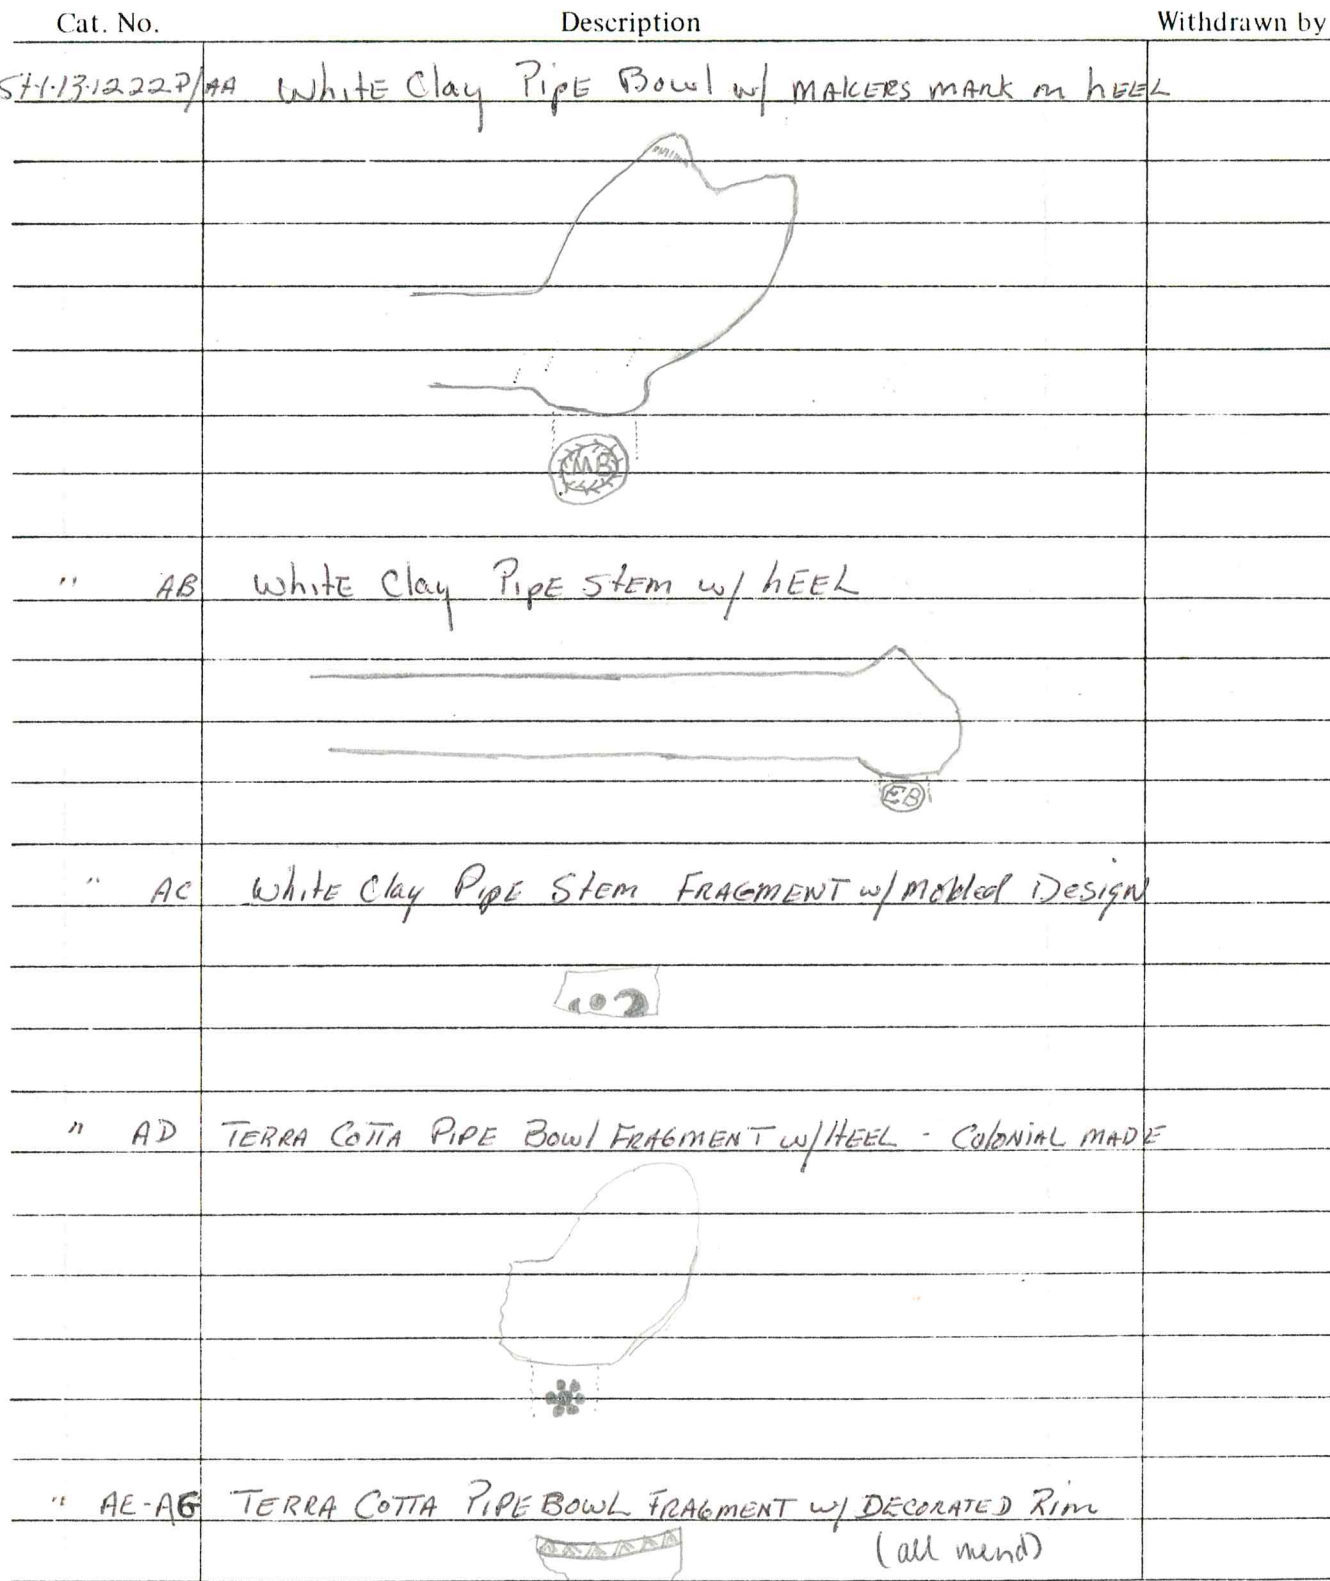 Cat. No. Description Withdrawn by
ST1·13·1222P/AA White Clay Pipe Bowl w/ MAKERS MARK on hEEL
MB
" AB White Clay Pipe Stem w/ hEEL
EB
" AC White Clay Pipe Stem FRAGMENT w/ Molded Design
" AD TERRA COTTA PIPE Bowl FRAGMENT w/ HEEL - COlONIAL MADE
" AE-AG TERRA COTTA PIPE BOWL FRAGMENT w/ DECORATED Rim
(all mend)